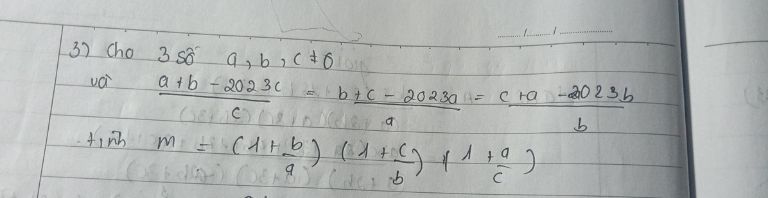 3) Cho 3 số a, b, c ≠ 0
và (a + b - 2023c)/c = (b + c - 2023a)/a = (c + a - 2023b)/b
tính m = (1 + b/a) (1 + c/b) (1 + a/c)